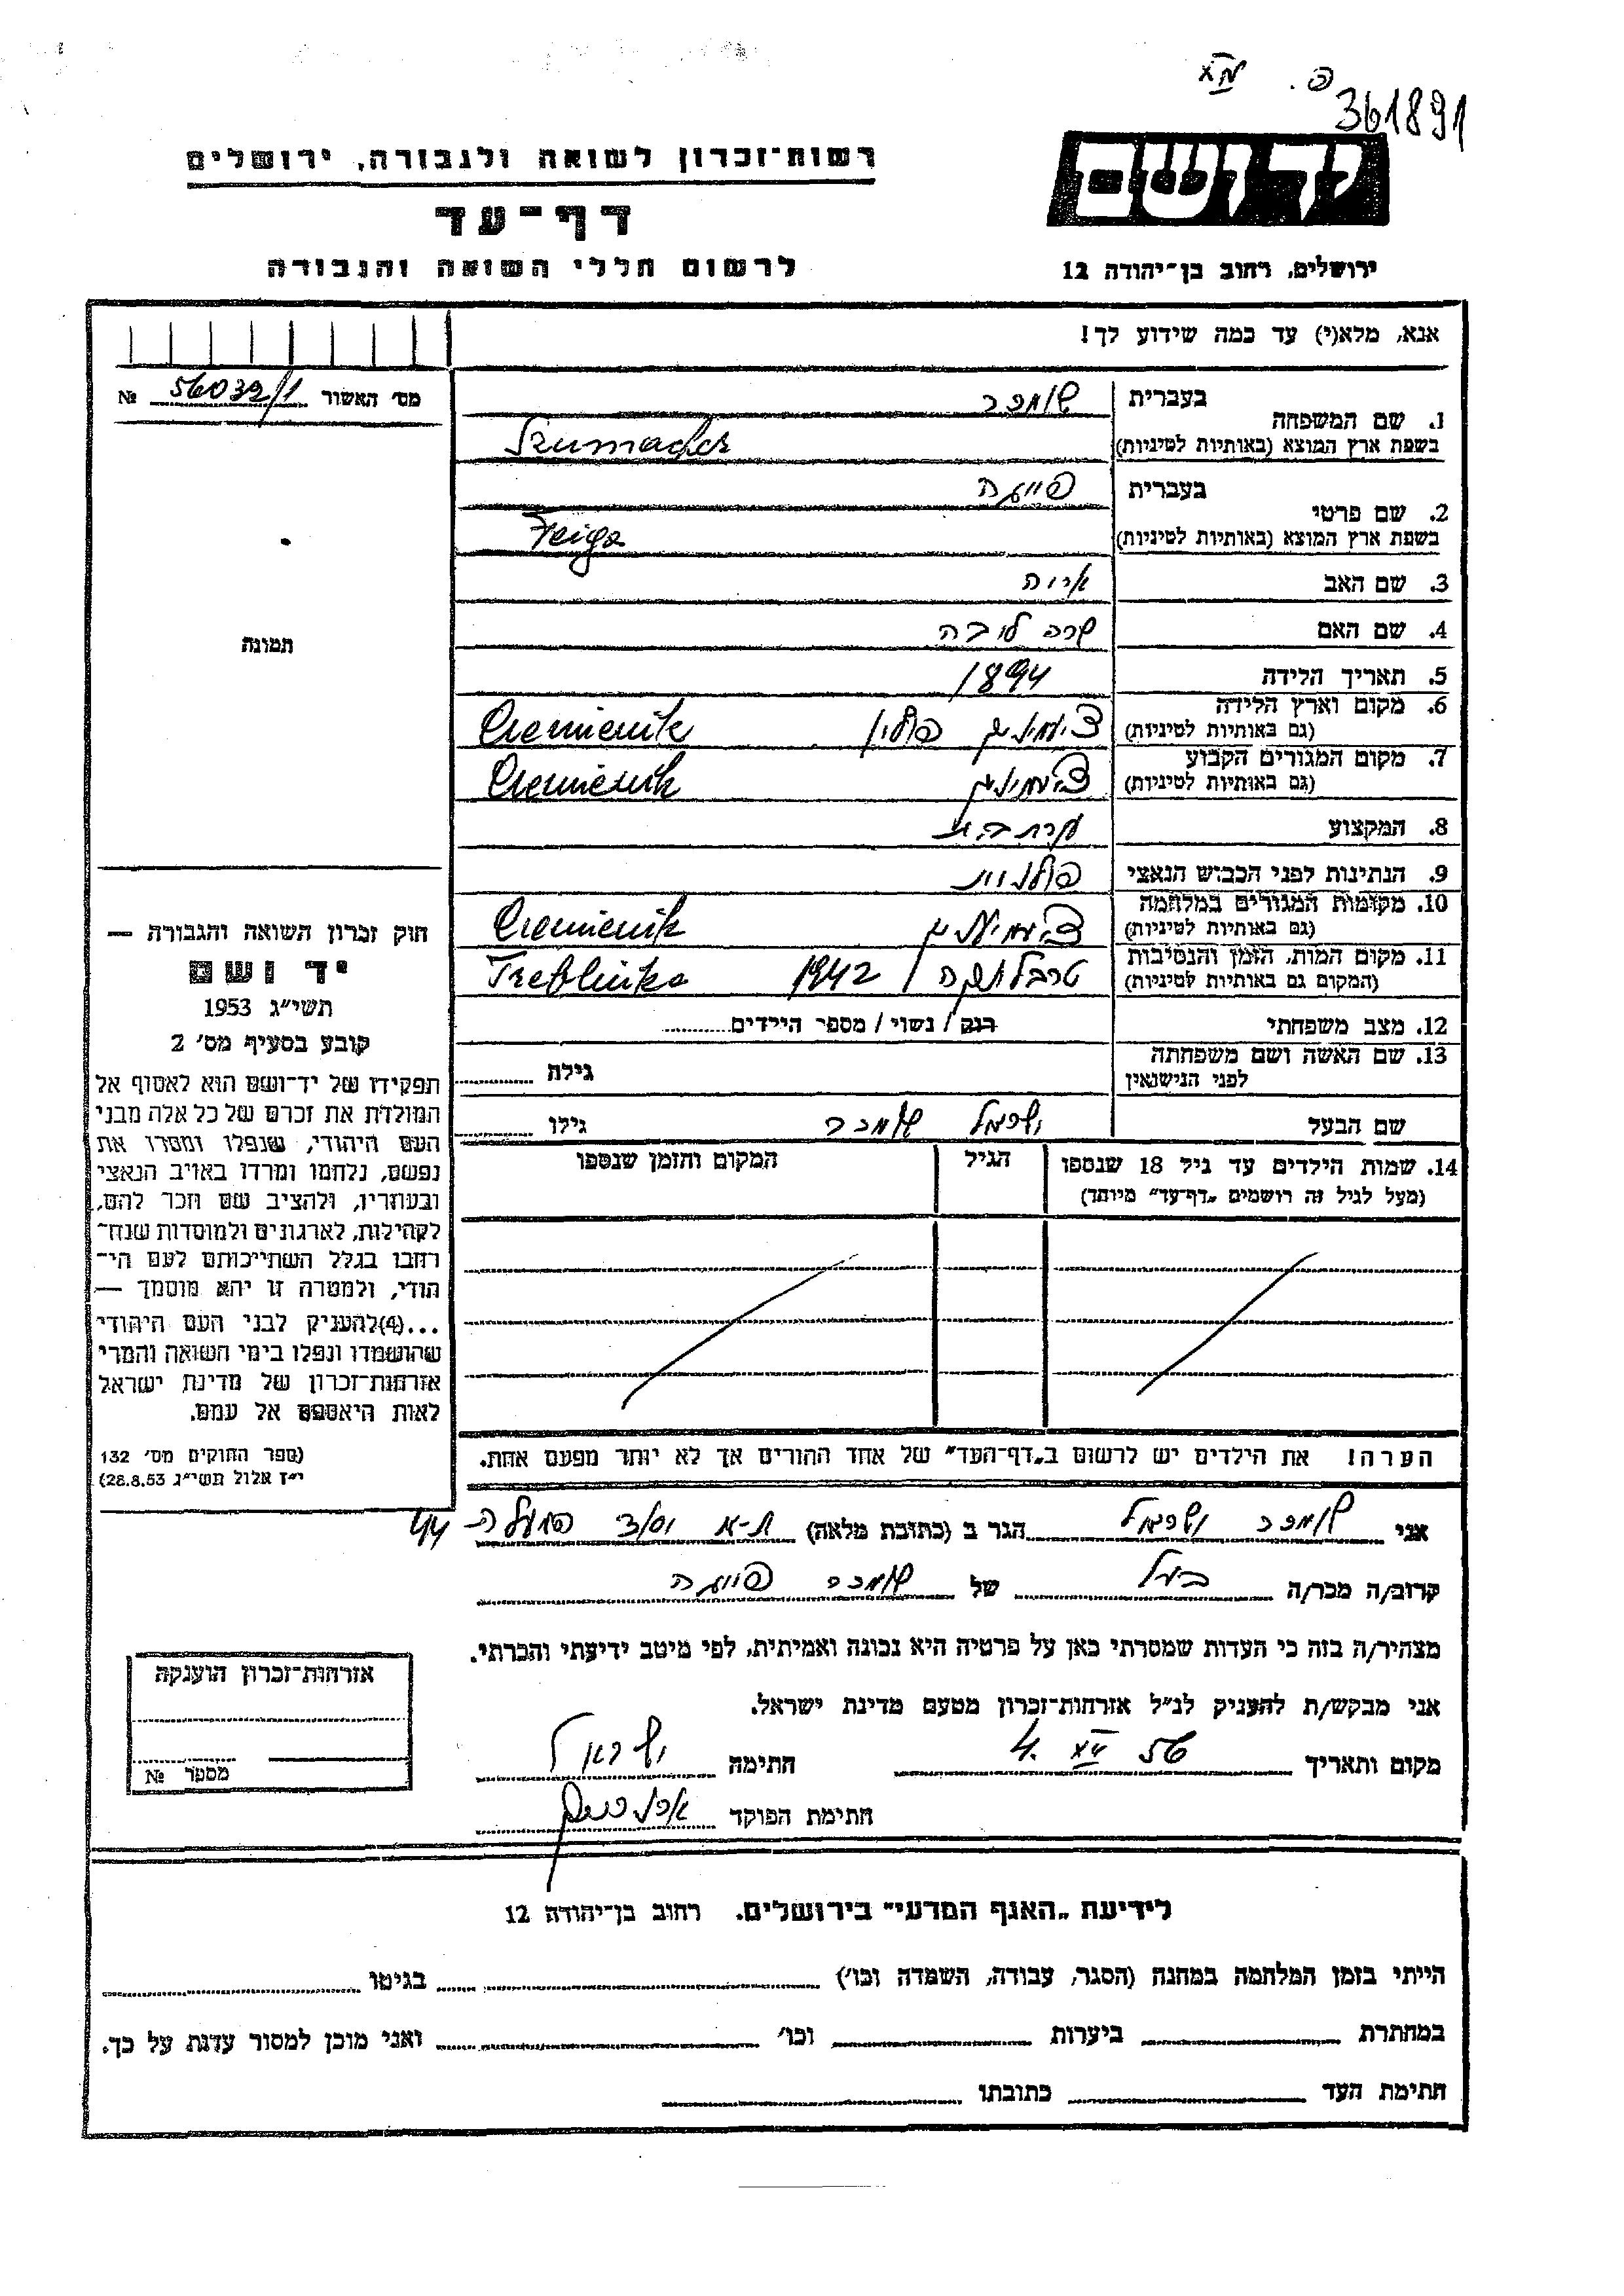 361891 פ.
יד ושם
רשות־זכרון לשואה ולגבורה, ירושלים
דף־עד
לרשום חללי השואה והגבורה
ירושלים, רחוב בן־יהודה 12
אנא, מלא(י) עד כמה שידוע לך!
מס׳ האשור 56032/1 №
תמונה
1. שם המשפחה
בעברית שומכר
בשפת ארץ המוצא (באותיות לטיניות) Szumacher
2. שם פרטי
בעברית פייגה
בשפת ארץ המוצא (באותיות לטיניות) Feiga
3. שם האב אריה
4. שם האם שרה ליבה
5. תאריך הלידה 1894
6. מקום וארץ הלידה
(גם באותיות לטיניות) פולין
7. מקום המגורים הקבוע
(גם באותיות לטיניות)
8. המקצוע עקרת בית
9. הנתינות לפני הכבוש הנאצי פולנית
10. מקומות המגורים במלחמה
(גם באותיות לטיניות)
11. מקום המות, הזמן והנסיבות
(המקום גם באותיות לטיניות) טרבלינקה / 1942 Treblinka
12. מצב משפחתי רווק / נשוי / מספר הילדים
13. שם האשה ושם משפחתה
לפני הנישואין גילה
שם הבעל ישראל שומכר גילו
14. שמות הילדים עד גיל 18 שנספו הגיל המקום והזמן שנספו
(מעל לגיל זה רושמים „דף־עד״ מיוחד)
הערה! את הילדים יש לרשום ב„דף־העד״ של אחד ההורים אך לא יותר מפעם אחת.
חוק זכרון השואה והגבורה —
יד ושם
תשי״ג 1953
קובע בסעיף מס׳ 2
תפקידו של יד־ושם הוא לאסוף אל
המולדת את זכרם של כל אלה מבני
העם היהודי, שנפלו ומסרו את
נפשם, נלחמו ומרדו באויב הנאצי
ובעוזריו, ולהציב שם וזכר להם,
לקהילות, לארגונים ולמוסדות שנח־
רבו בגלל השתייכותם לעם הי־
הודי, ולמטרה זו יהא מוסמך —
...(4)להעניק לבני העם היהודי
שהושמדו ונפלו בימי השואה והמרי
אזרחות־זכרון של מדינת ישראל
לאות היאספם אל עמם.
(ספר החוקים מס׳ 132
י״ז אלול תשי״ג 28.8.53)
אני שומכר ישראל הגר ב (כתובת מלאה) ת-א 44
קרוב/ה מכר/ה בעל של שומכר פייגה
מצהיר/ה בזה כי העדות שמסרתי כאן על פרטיה היא נכונה ואמיתית, לפי מיטב ידיעתי והכרתי.
אני מבקש/ת להעניק לנ״ל אזרחות־זכרון מטעם מדינת ישראל.
מקום ותאריך 4. XII 56 חתימה ישראל
חתימת הפוקד
אזרחות־זכרון הוענקה
מספר №
לידיעת „האגף המדעי״ בירושלים. רחוב בן־יהודה 12
הייתי בזמן המלחמה במחנה (הסגר, עבודה, השמדה וכו׳) בגיטו
במחתרת ביערות וכו׳ ואני מוכן למסור עדות על כך.
חתימת העד כתובתו